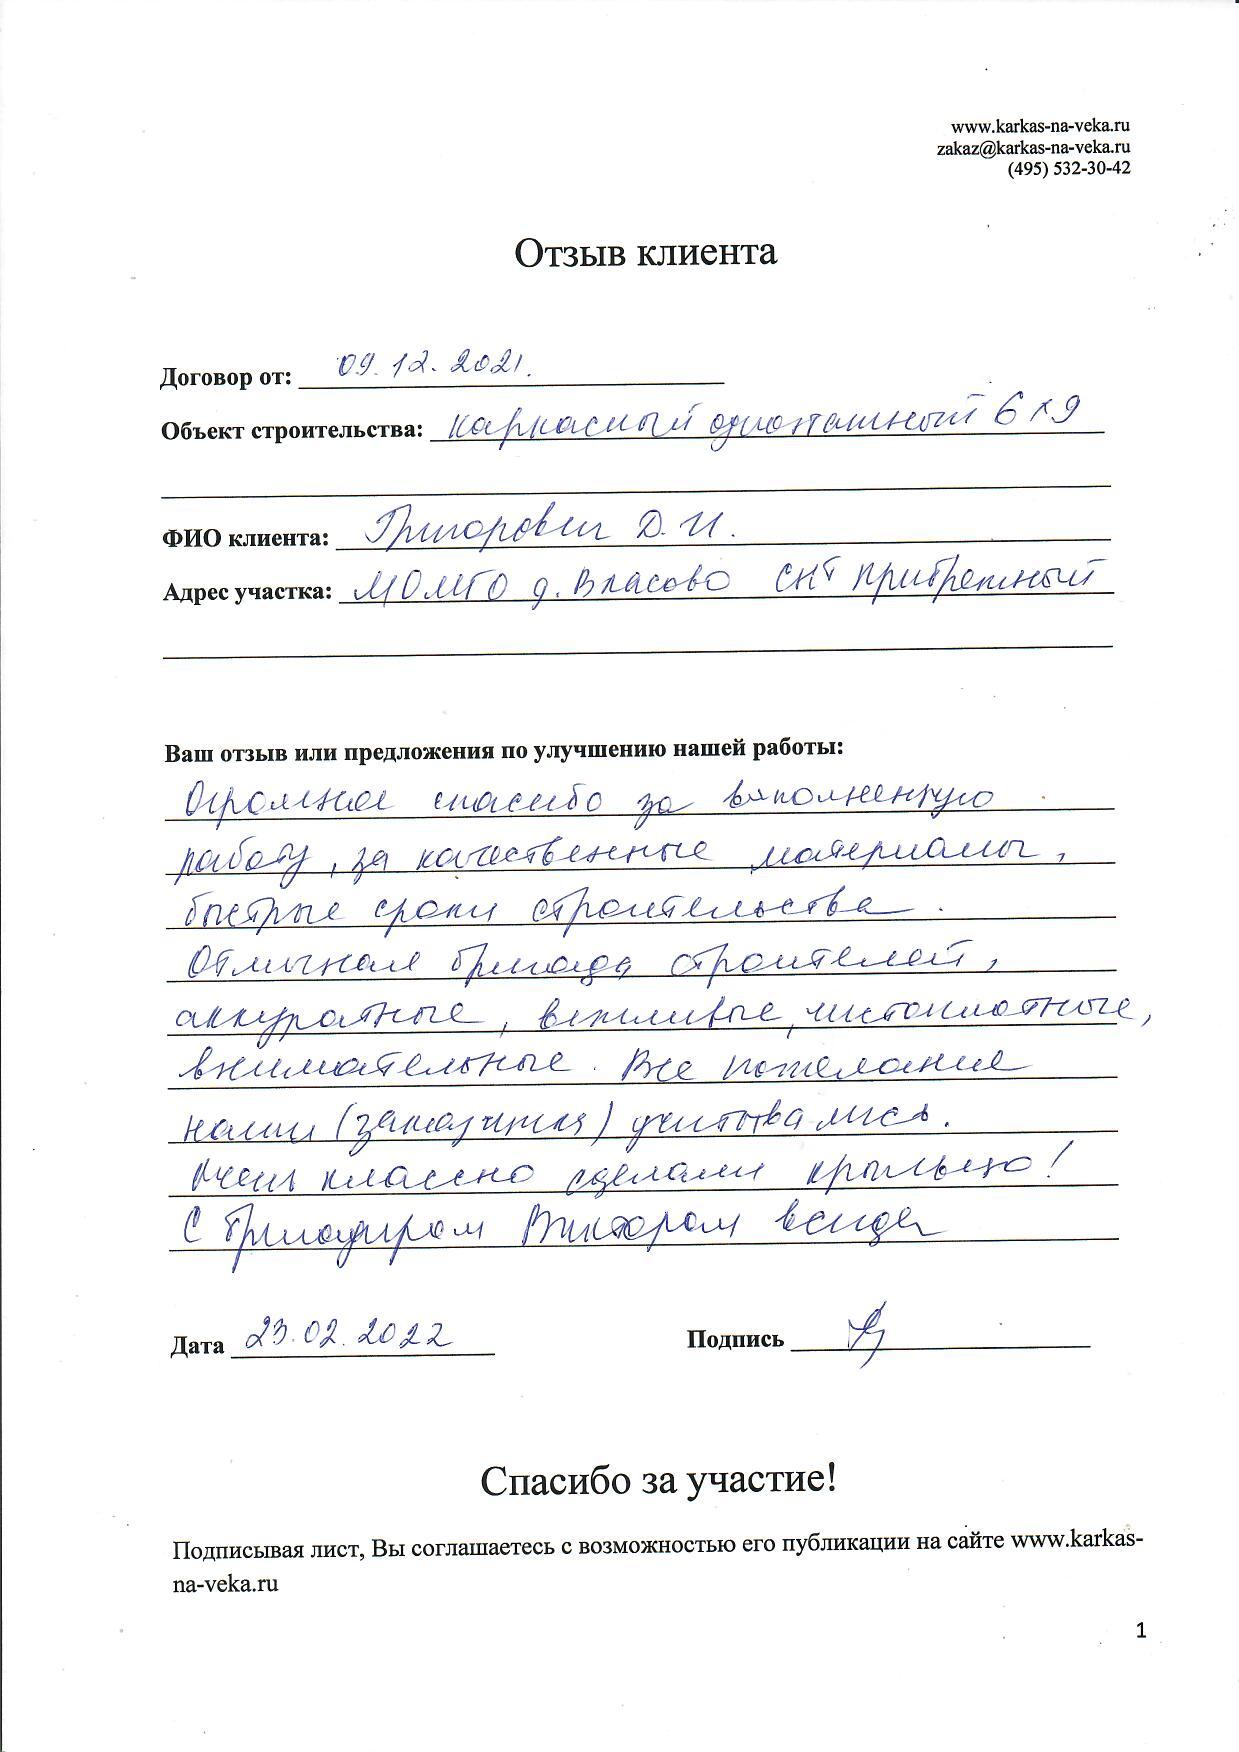 www.karkas-na-veka.ru
zakaz@karkas-na-veka.ru
(495) 532-30-42
Отзыв клиента
Договор от: 09.12.2021.
Объект строительства: каркасный одноэтажный 6х9
ФИО клиента: Григорович Д.И.
Адрес участка: МО МГО д. Власово СНТ Прибрежный
Ваш отзыв или предложения по улучшению нашей работы:
Огромное спасибо за выполненную
работу, за качественные материалы,
быстрые сроки строительства.
Отличная бригада строителей,
аккуратные, вежливые, чистоплотные,
внимательные. Все пожелание
наши (заказчика) учитывались.
Очень классно сделали крыльцо!
С бригадиром Виктором всегда
Дата 23.02.2022 Подпись
Спасибо за участие!
Подписывая лист, Вы соглашаетесь с возможностью его публикации на сайте www.karkas-
na-veka.ru
1